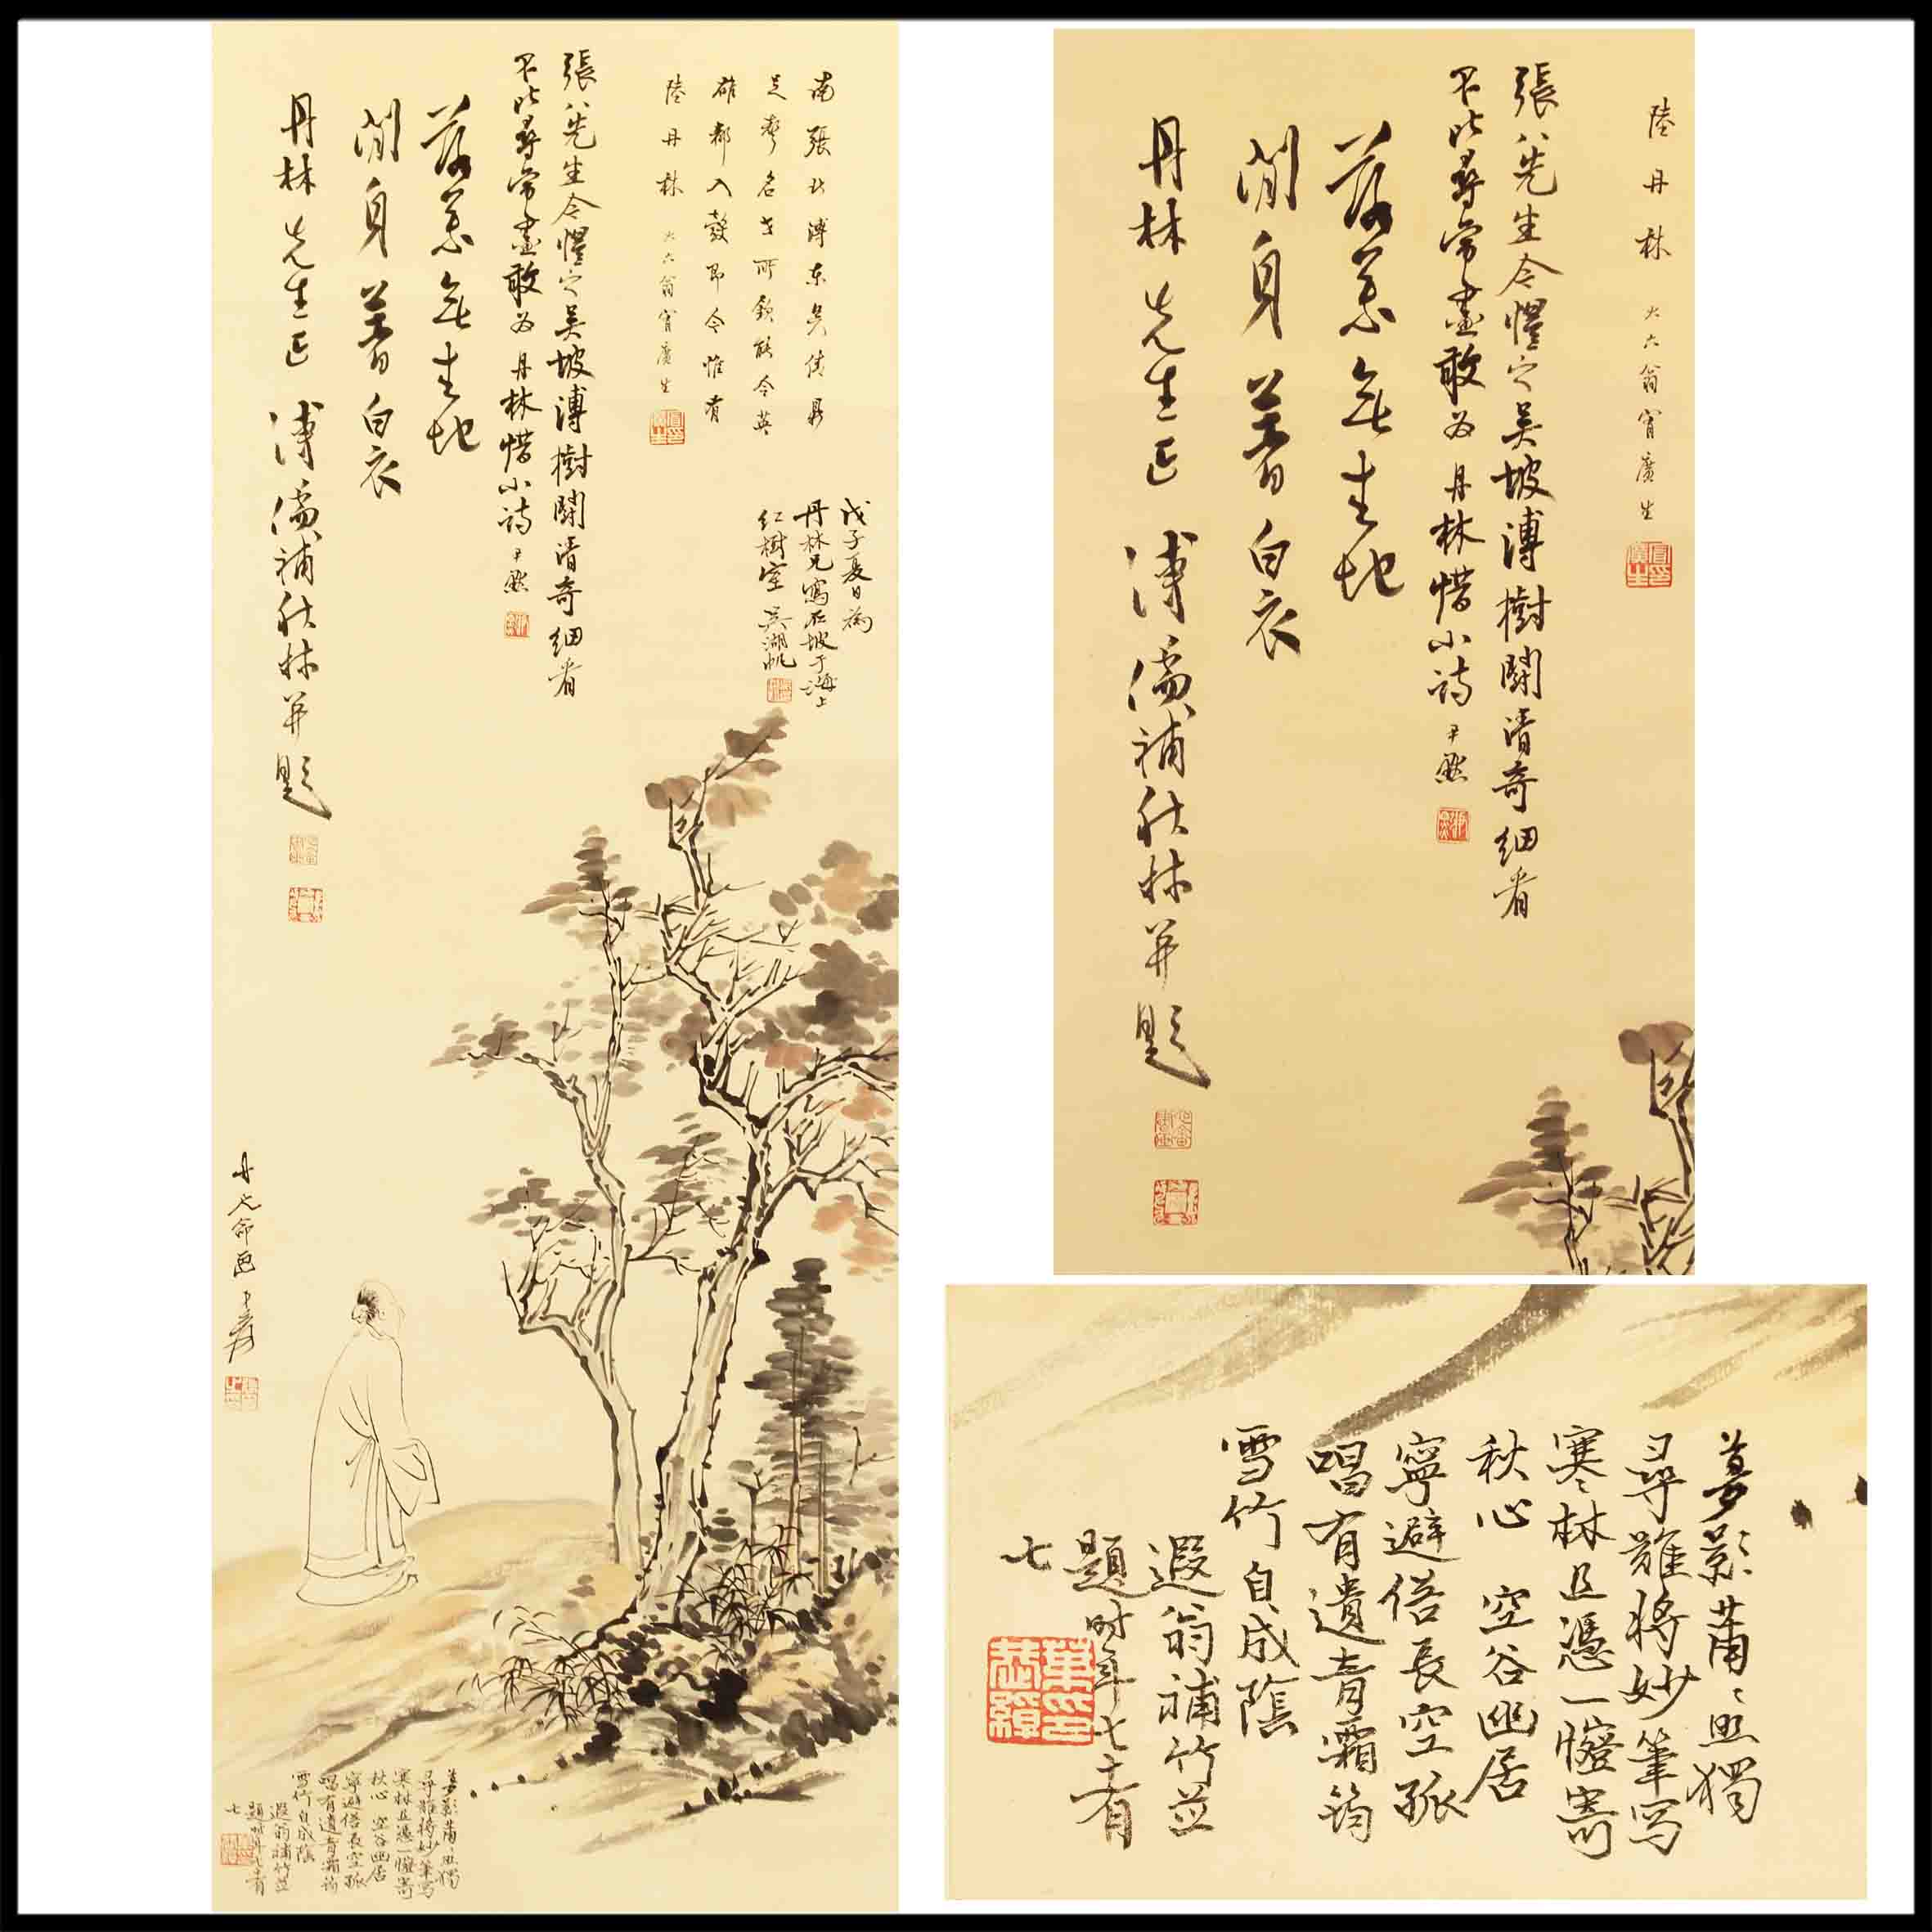 南張北溥東吳倩鼎
足齊名世所欽能令英
雄都入彀即今惟有
陸丹林 六六翁冒廣生
戊子夏日為
丹林兄寫石坡于海上
紅樹室 吳湖帆
張八先生今愷之吳坡溥樹鬭清奇細看
不比尋常畫敢為丹林惜小詩 尹默
落葉無地
閒身著白衣
丹林先生正 溥儒補秋林并題
丹兄命画 大千爰
夢影蕭〻照獨
尋難將妙筆写
寒林且憑一寄
秋心 空谷幽居
寧避俗長空孤
唱有遺音霜筠
雪竹自成陰
遐翁補竹並
題時年七十有
七
陸丹林 六六翁冒廣生
張八先生今愷之吳坡溥樹鬭清奇細看
不比尋常畫敢為丹林惜小詩 尹默
落葉無地
閒身著白衣
丹林先生正 溥儒補秋林并題
夢影蕭〻照獨
尋難將妙筆写
寒林且憑一寄
秋心 空谷幽居
寧避俗長空孤
唱有遺音霜筠
雪竹自成陰
遐翁補竹並
題時年七十有
七
葉恭綽印